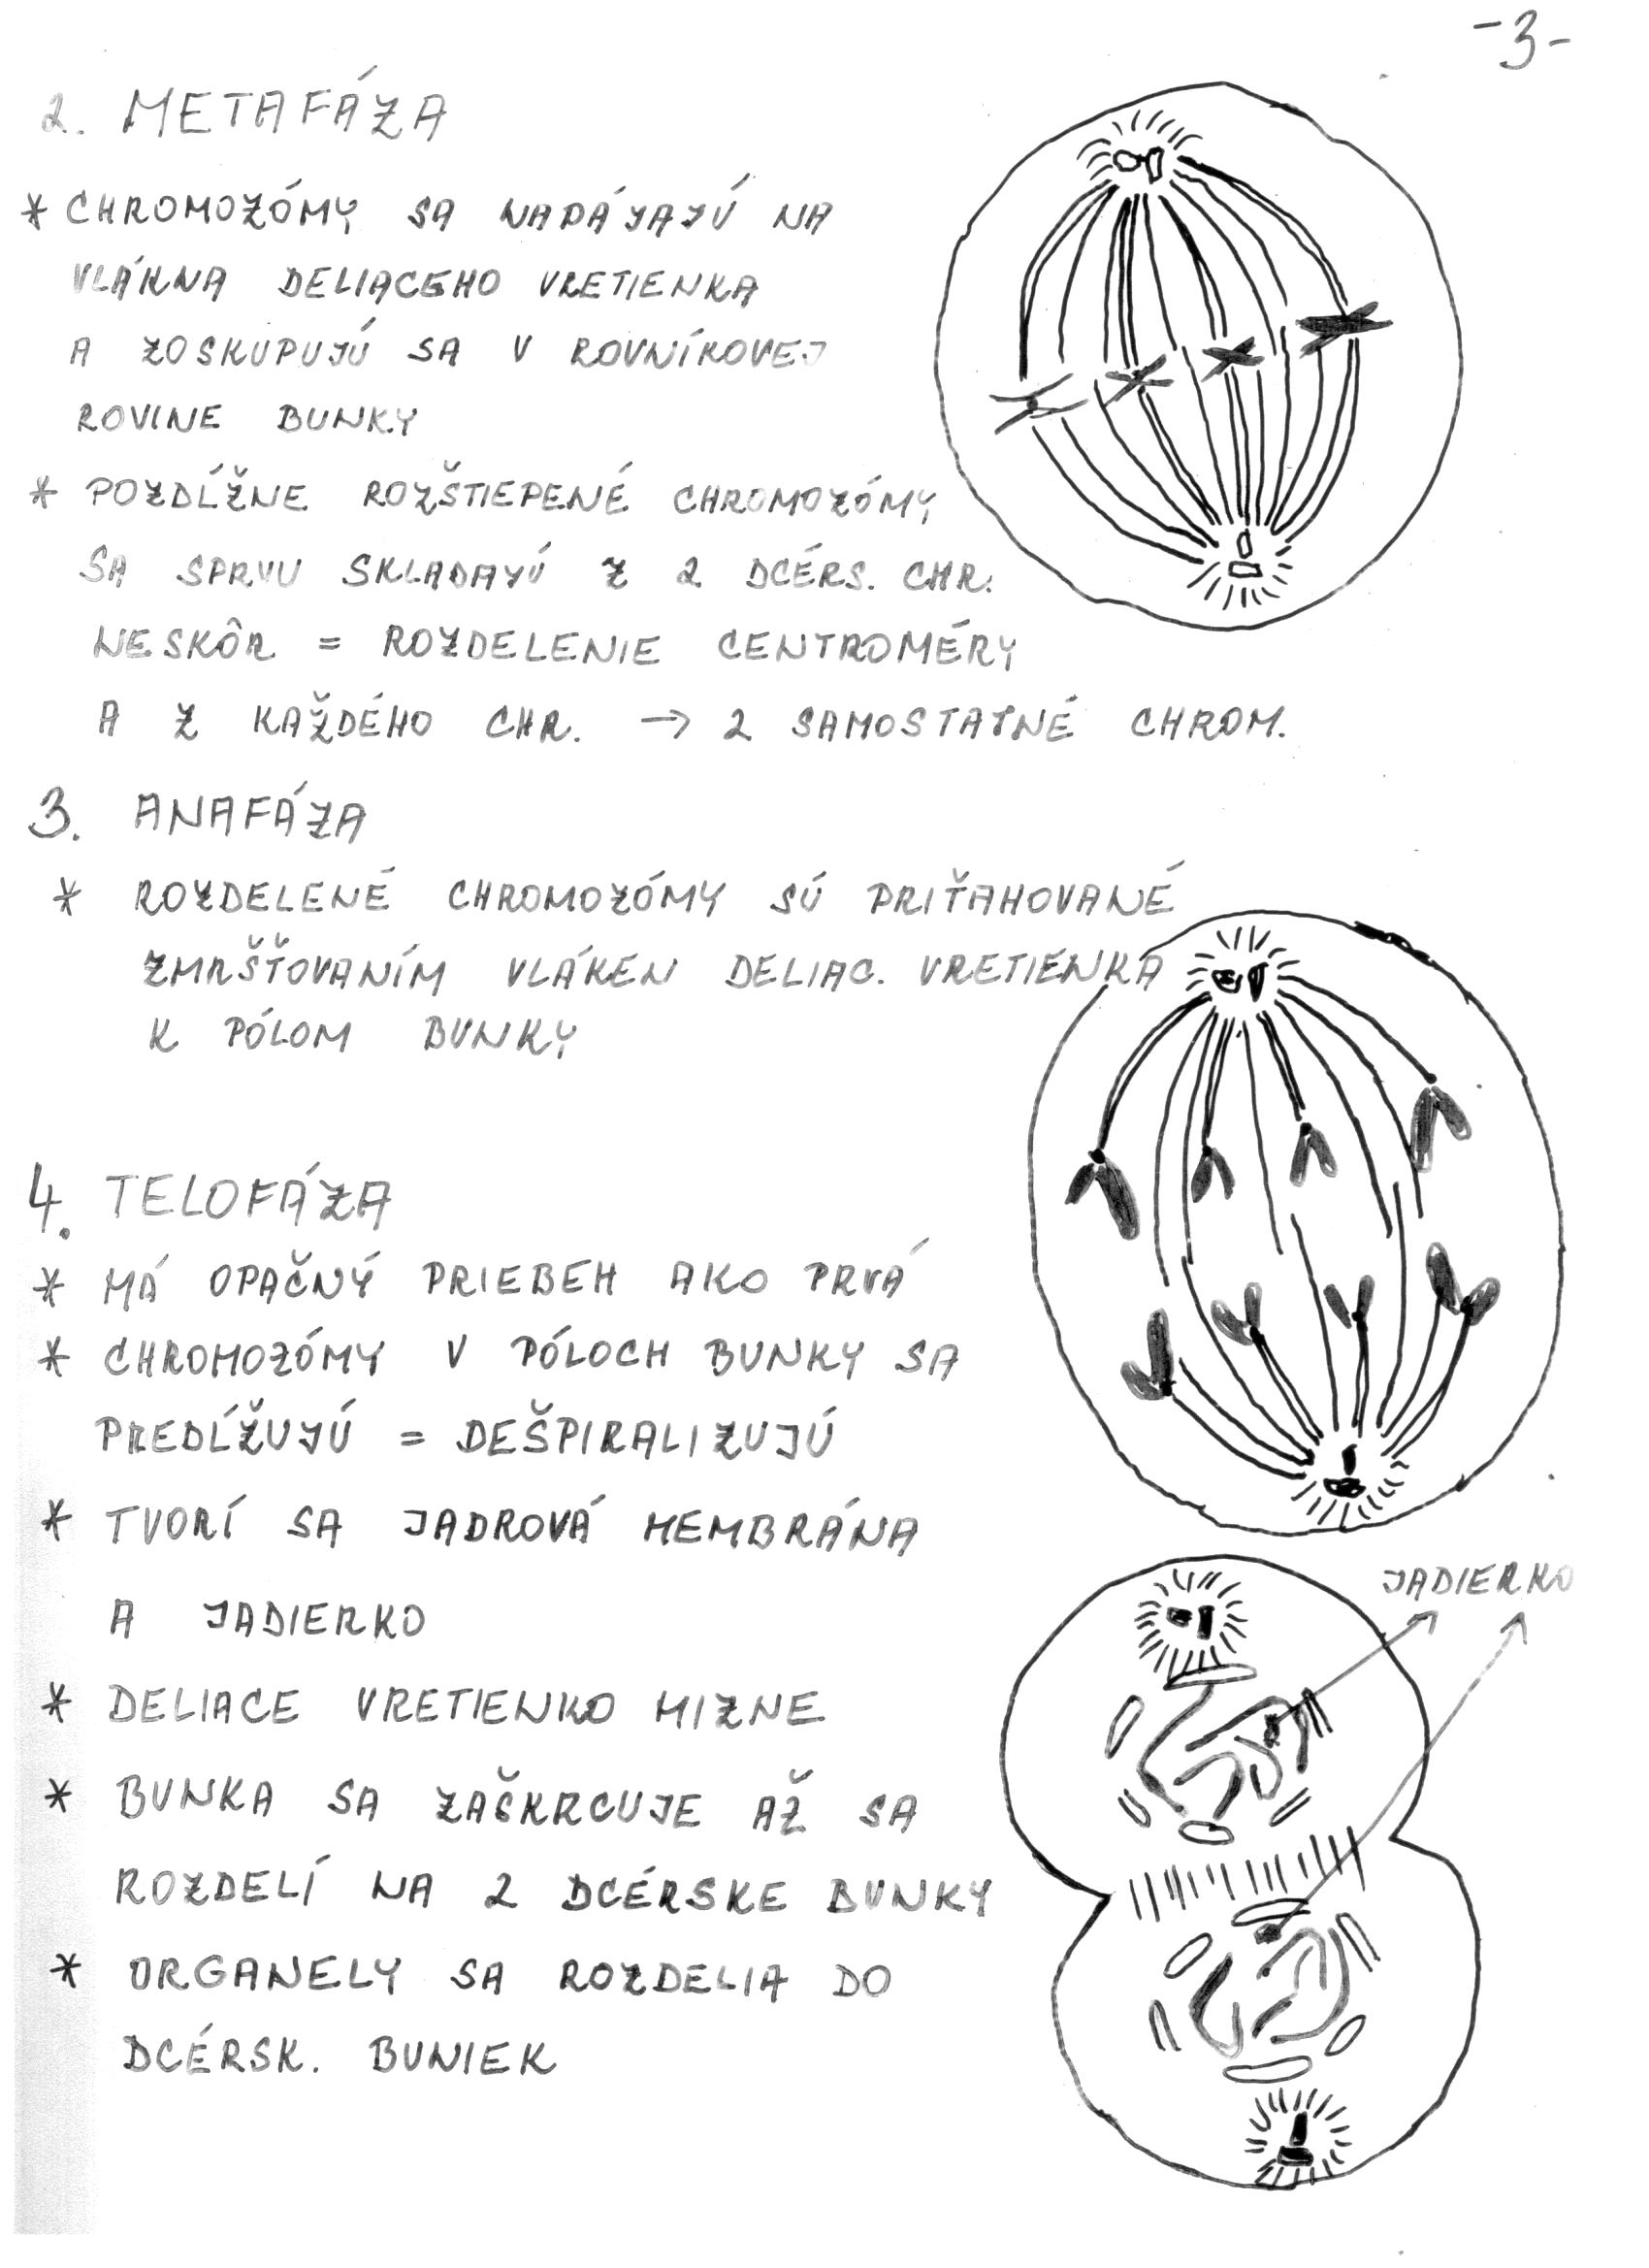 -3-
2. METAFÁZA
* CHROMOZÓMY SA NAPÁJAJÚ NA
VLÁKNA DELIACEHO VRETIENKA
A ZOSKUPUJÚ SA V ROVNÍKOVEJ
ROVINE BUNKY
* POZDĹŽNE ROZŠTIEPENÉ CHROMOZÓMY
SA SPRVU SKLADAJÚ Z 2 DCÉRS. CHR.
NESKÔR = ROZDELENIE CENTROMÉRY
A Z KAŽDÉHO CHR. → 2 SAMOSTATNÉ CHROM.
3. ANAFÁZA
* ROZDELENÉ CHROMOZÓMY SÚ PRIŤAHOVANÉ
ZMRŠŤOVANÍM VLÁKEN DELIAC. VRETIENKA
K PÓLOM BUNKY
4. TELOFÁZA
* MÁ OPAČNÝ PRIEBEH AKO PRVÁ
* CHROMOZÓMY V PÓLOCH BUNKY SA
PREDLŽUJÚ = DEŠPIRALIZUJÚ
* TVORÍ SA JADROVÁ MEMBRÁNA
A JADIERKO
JADIERKO
* DELIACE VRETIENKO MIZNE
* BUNKA SA ZAŠKRCUJE AŽ SA
ROZDELÍ NA 2 DCÉRSKE BUNKY
* ORGANELY SA ROZDELIA DO
DCÉRSK. BUNIEK